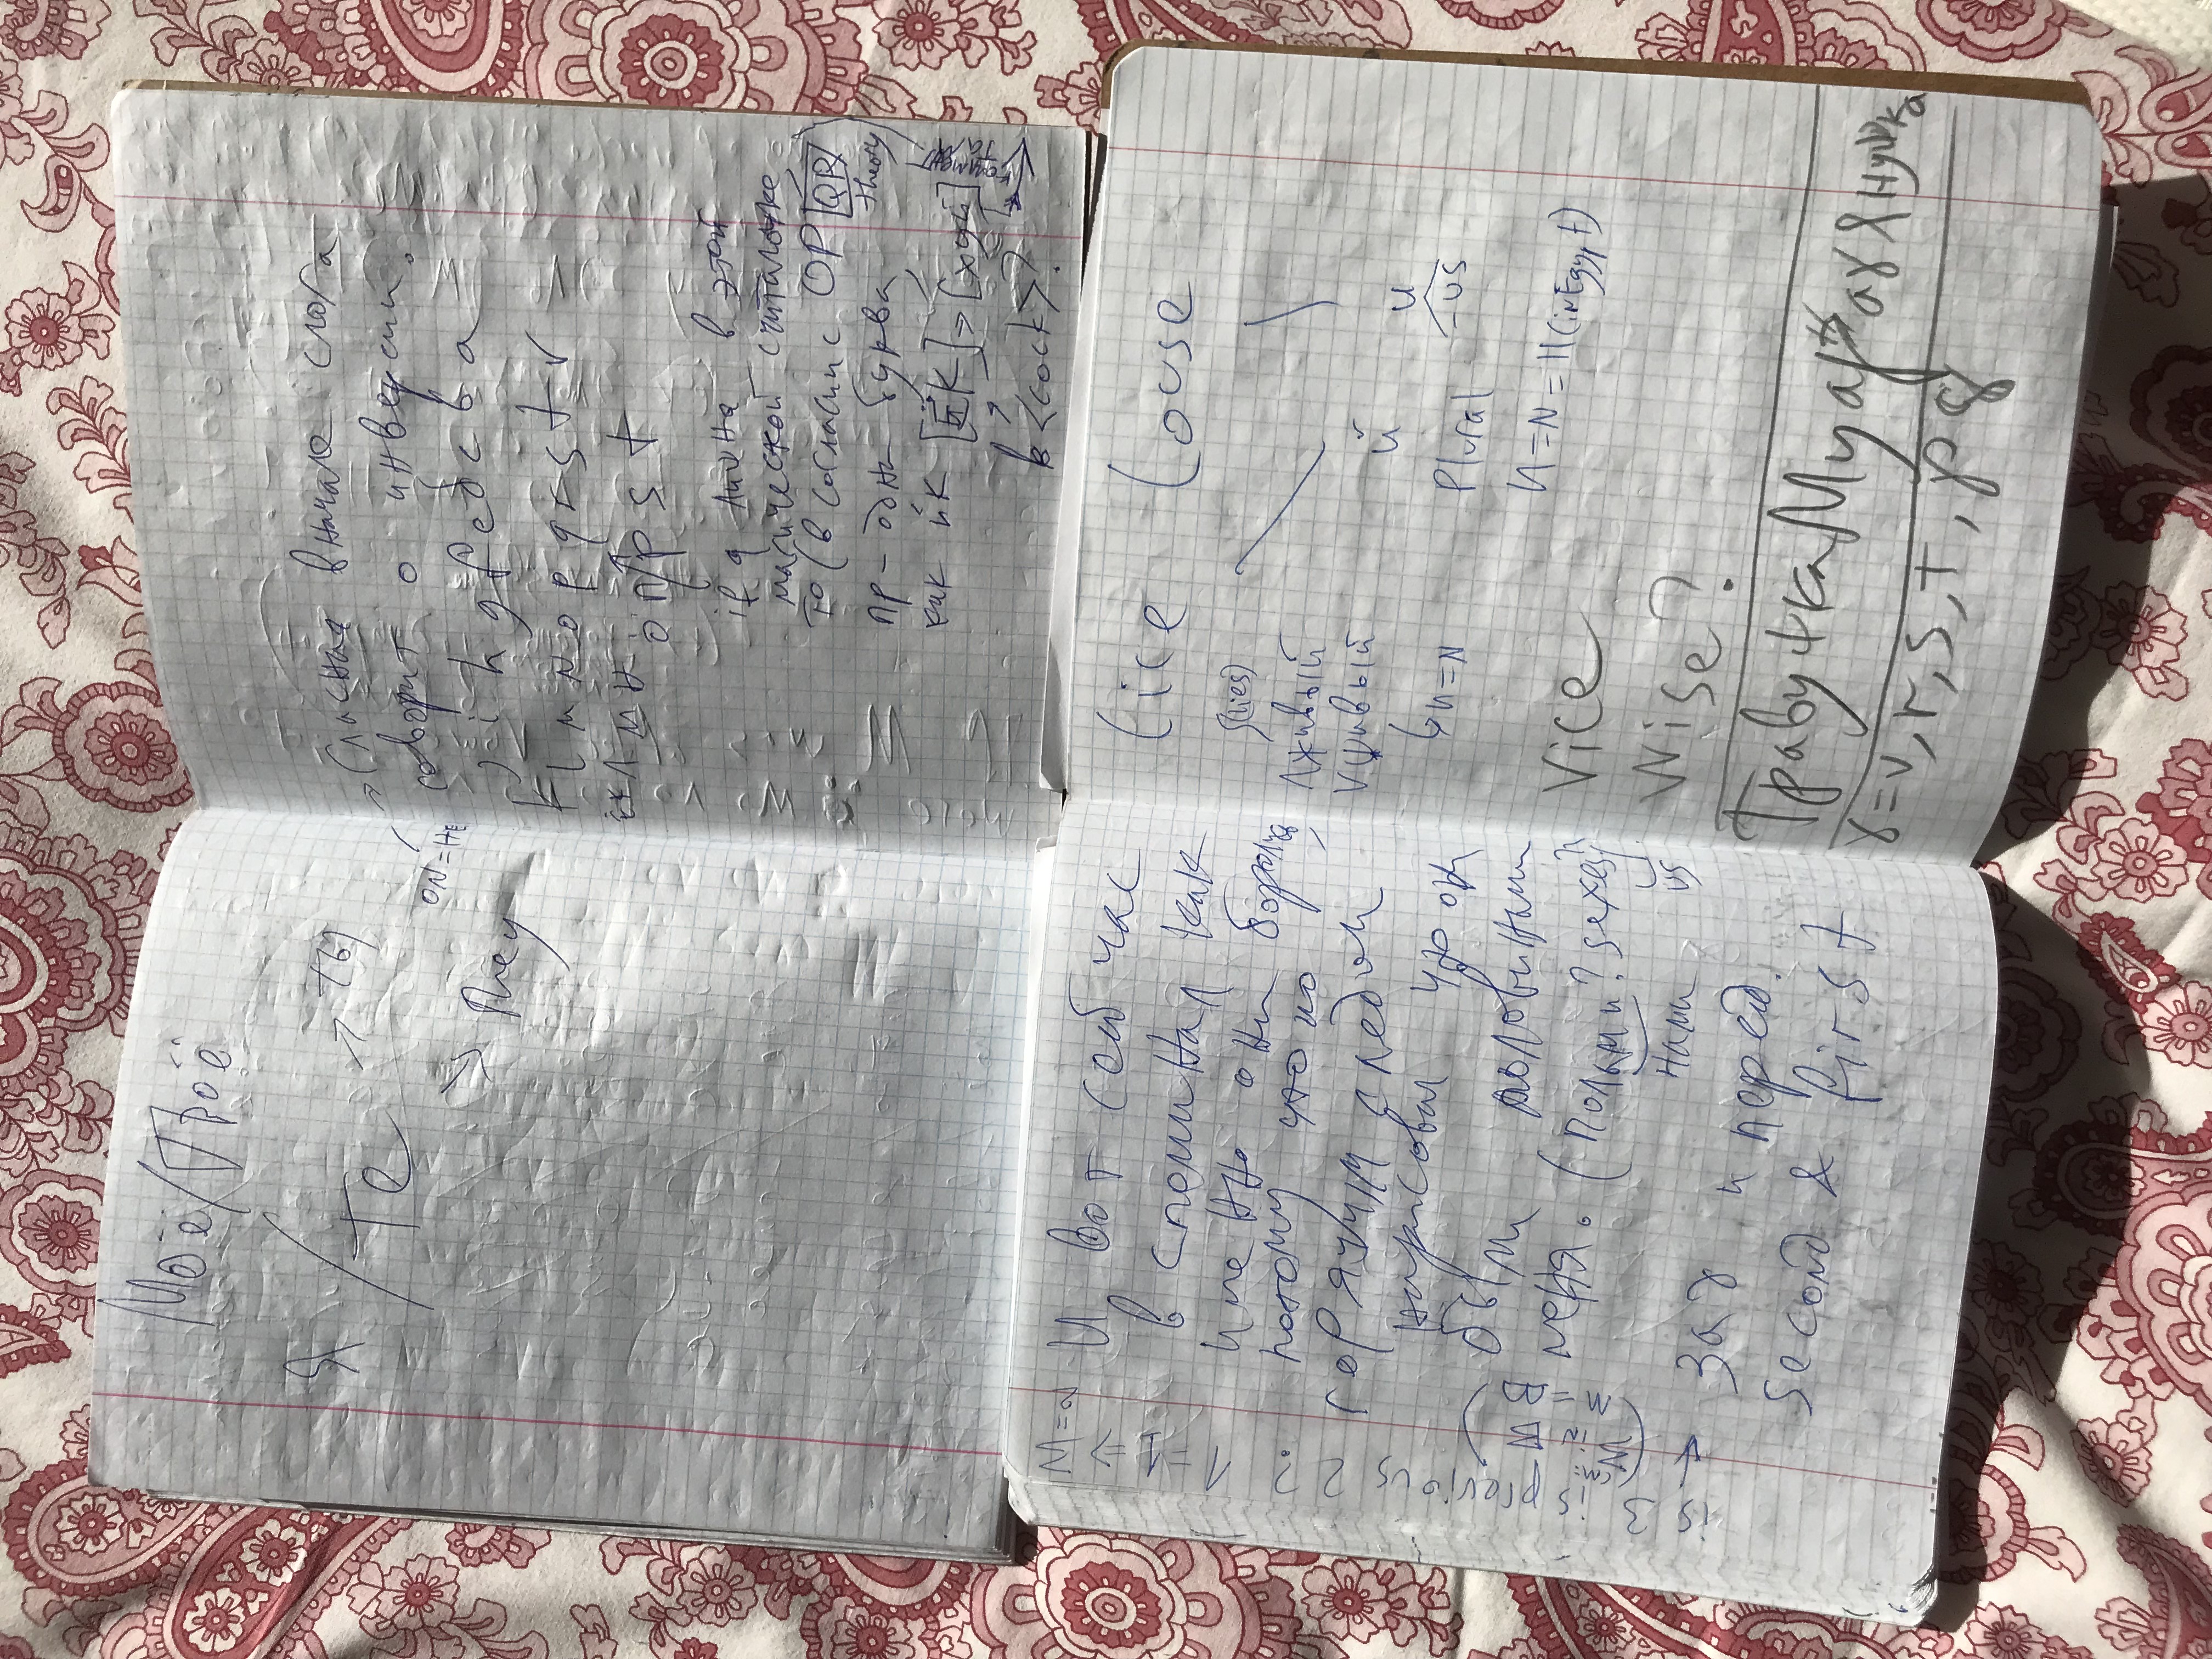 Моё/Твоё
Я / те → ты
They
ON = НЕ
Гласная в начале слога
говорит о инверсии.
j i h g f e d c b a
k l m n o p q r s t v
ёклмн
оп/р s t
if q лишна в этой
магической считалочке
то (в согласии с OP [QR]
theory
пр - одна буква,
как йк [ЁК] → [хуй]
в <cock>?
И вот сейчас
вспоминал как
именно они боролись,
потому что по
горячим следам
нарисовал что они
были половинами
меня. (полыми? sexes)
нами us
Зад и перед.
second & first
is 3 is previous 2? 1 = 1 => M = 2
Lice Louse
(lies)
Лживый
Vшивый
и = N
й и
Plural -us
И = N = II (in Egypt)
Vice
Wise?
Травушка Му
ɣ = v, r, s, т, р